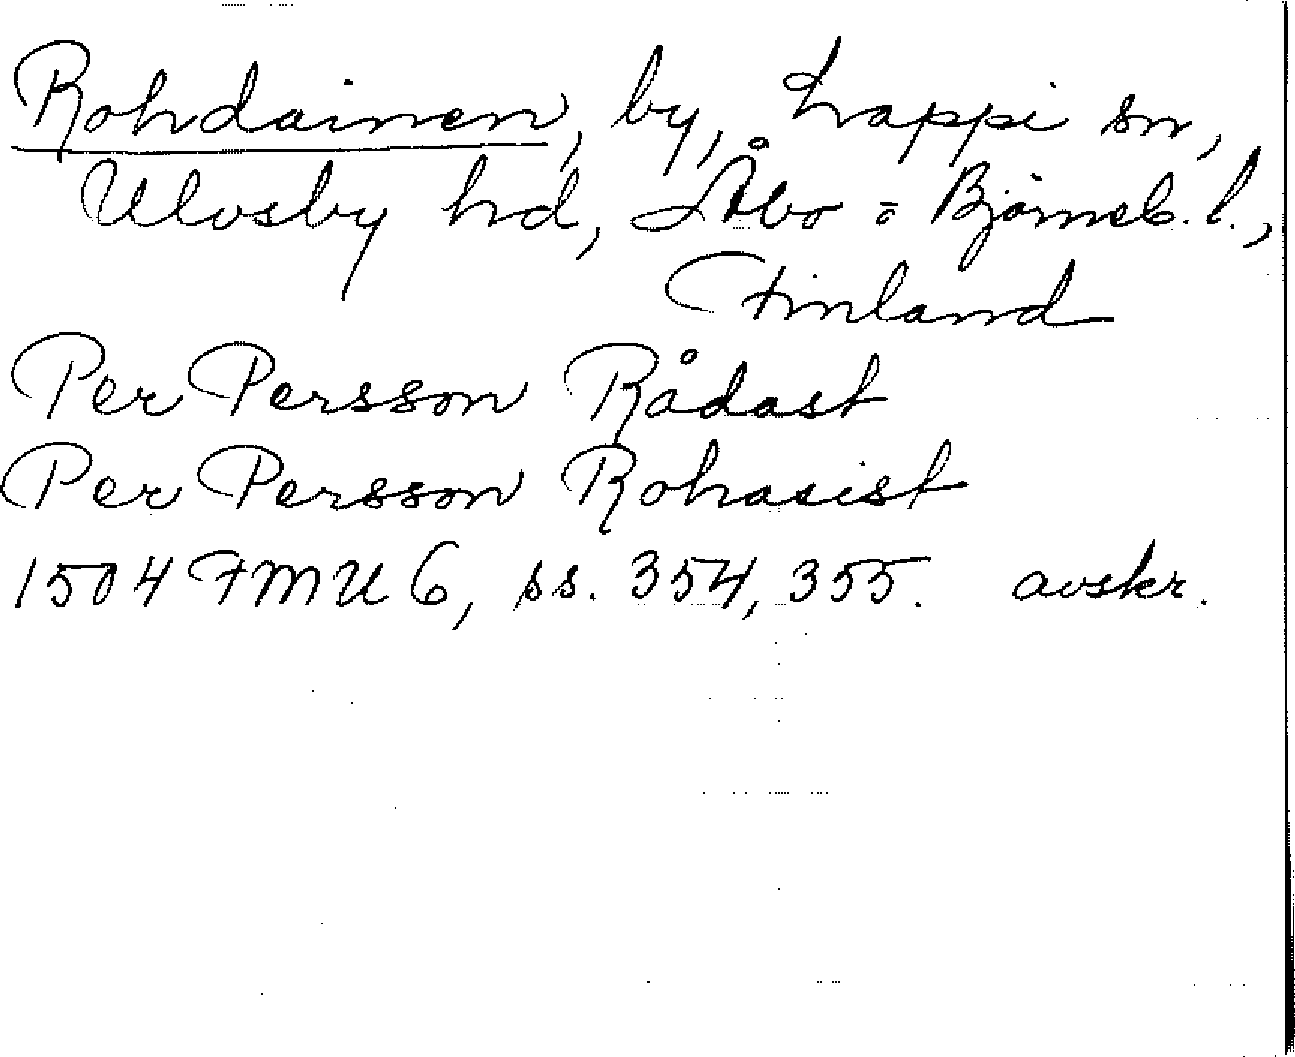 Rohdainen, by, Lappi sn,
Ulvsby hd, Åbo o Björneb. l.,
Finland
Per Persson Rådast
Per Persson Rohaist
1504 FMU 6, ss. 354, 355. avskr.